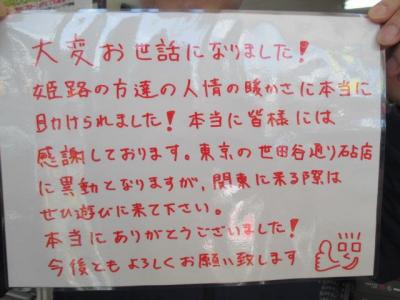 大変お世話になりました!
姫路の方達の人情の暖かさに本当に
助けられました!本当に皆様には
感謝しております。東京の世田谷通り砧店
に異動となりますが、関東に来る際は
ぜひ遊びに来て下さい。
本当にありがとうございました!
今後ともよろしくお願い致します